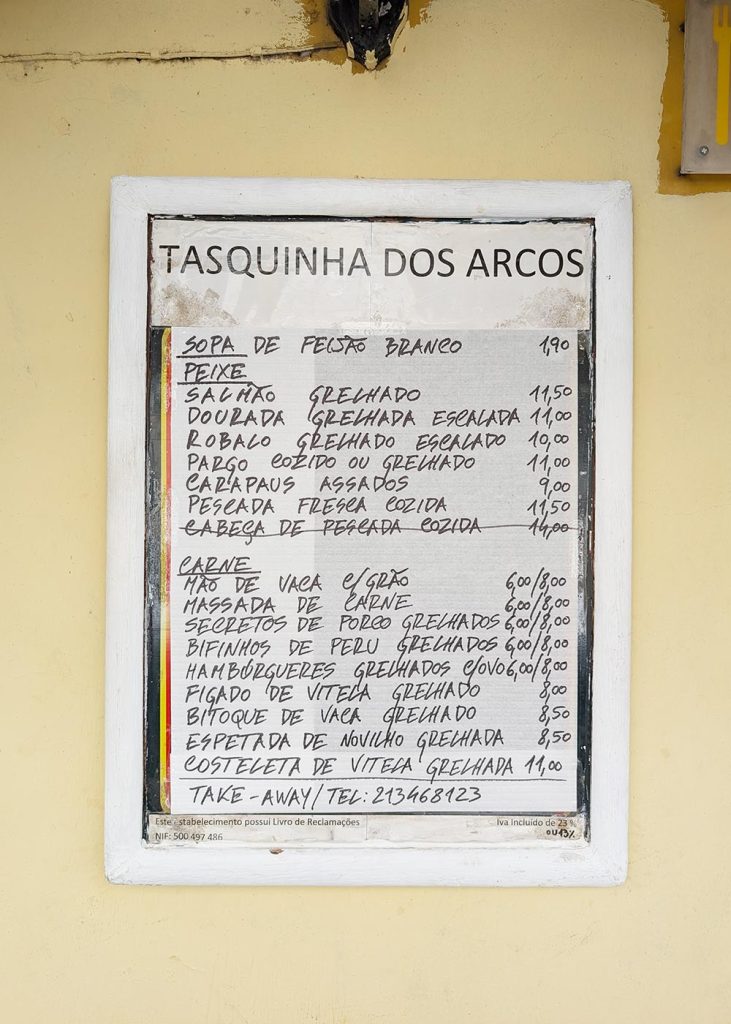 TASQUINHA DOS ARCOS
SOPA DE FEIJÃO BRANCO 1,90
PEIXE
SALMÃO GRELHADO 11,50
DOURADA GRELHADA ESCALADA 11,00
ROBALO GRELHADO ESCALADO 10,00
PARGO COZIDO OU GRELHADO 11,00
CARAPAUS ASSADOS 9,00
PESCADA FRESCA COZIDA 11,50
CABEÇA DE PESCADA COZIDA 14,00
CARNE
MÃO DE VACA C/GRÃO 6,00/8,00
MASSADA DE CARNE 6,00/8,00
SECRETOS DE PORCO GRELHADOS 6,00/8,00
BIFINHOS DE PERU GRELHADOS 6,00/8,00
HAMBÚRGUERES GRELHADOS C/OVO 6,00/8,00
FIGADO DE VITELA GRELHADO 8,00
BITOQUE DE VACA GRELHADO 8,50
ESPETADA DE NOVILHO GRELHADA 8,50
COSTELETA DE VITELA GRELHADA 11,00
TAKE-AWAY/TEL: 213468123
Este stabelecimento possui Livro de Reclamações Iva Incluido de 23 %
NIF: 500 497 486 OU 13%